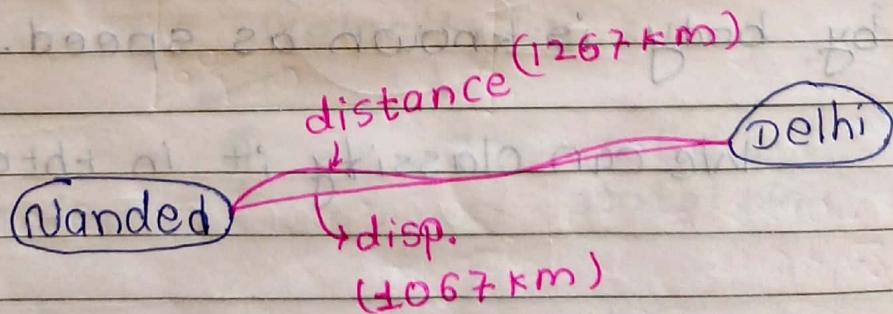 distance (1267 km)
Delhi
Nanded
disp.
(1067 km)